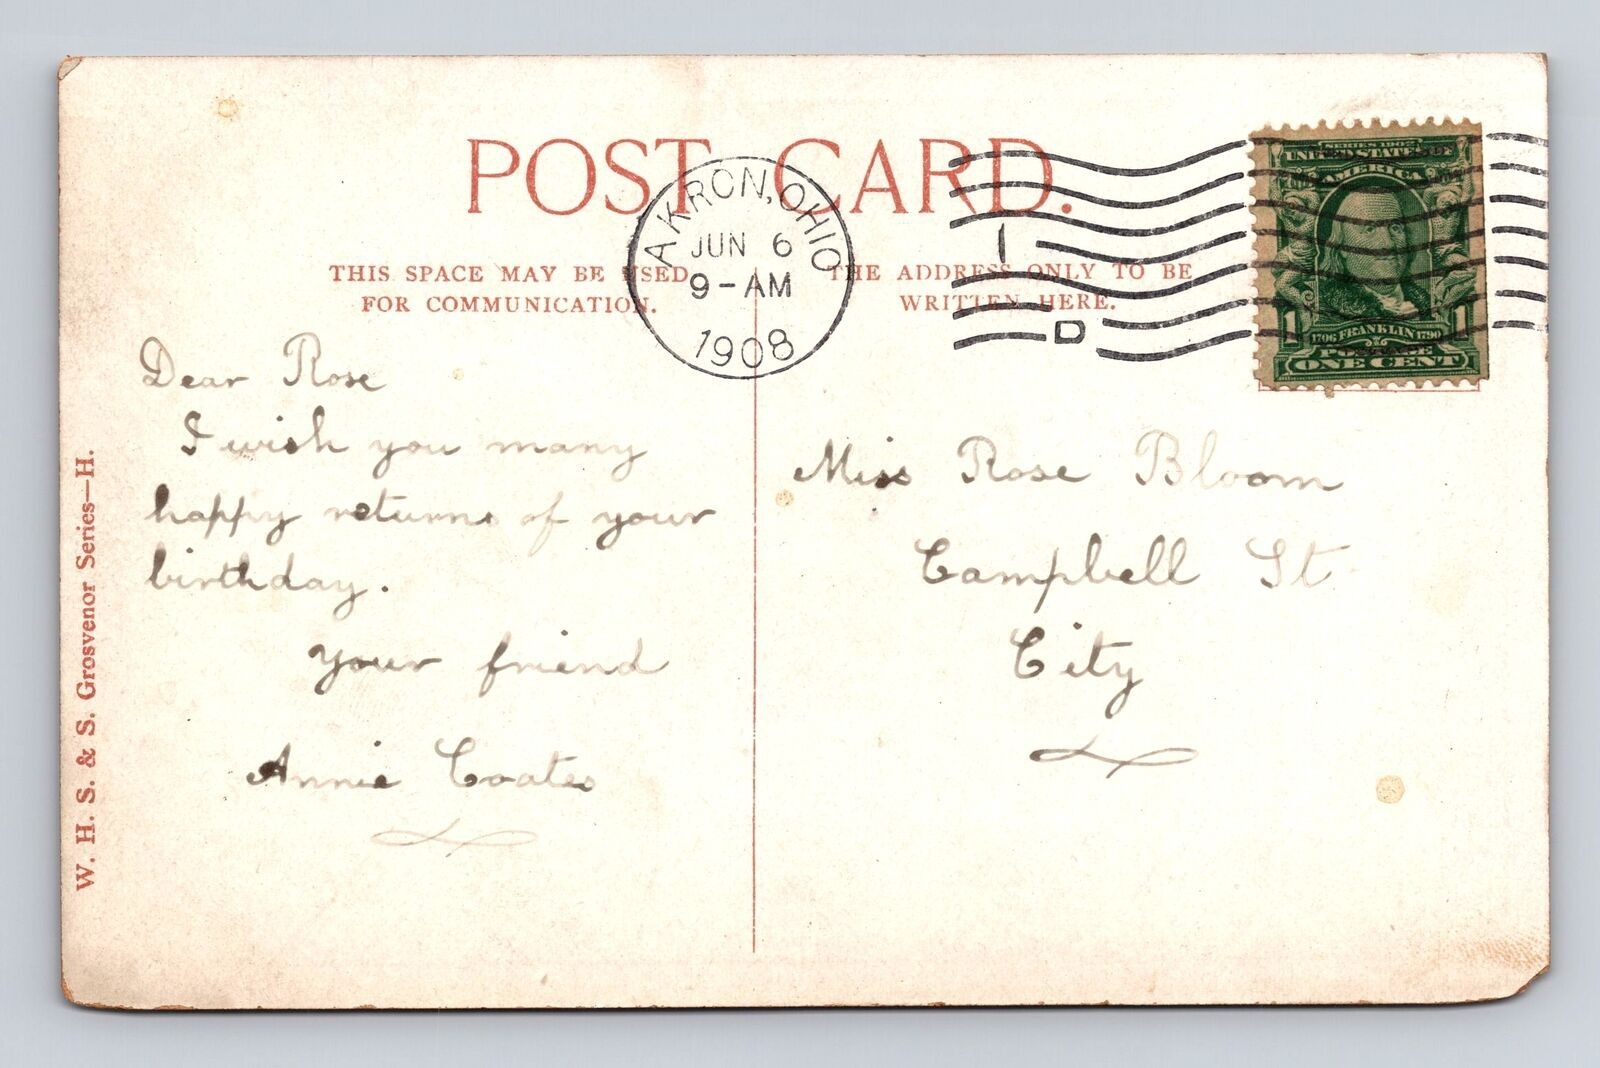 POST CARD.
THIS SPACE MAY BE USED
FOR COMMUNICATION.
THE ADDRESS ONLY TO BE
WRITTEN HERE.
AKRON, OHIO
JUN 6
9-AM
1908
1
D
SERIES 1902
UNITED STATES OF
AMERICA
1 1706 FRANKLIN 1790 1
POSTAGE
ONE CENT
Dear Rose
I wish you many
happy returns of your
birthday.
your friend
Annie Coates
Miss Rose Bloom
Campbell St
City
W. H. S. & S. Grosvenor Series—H.